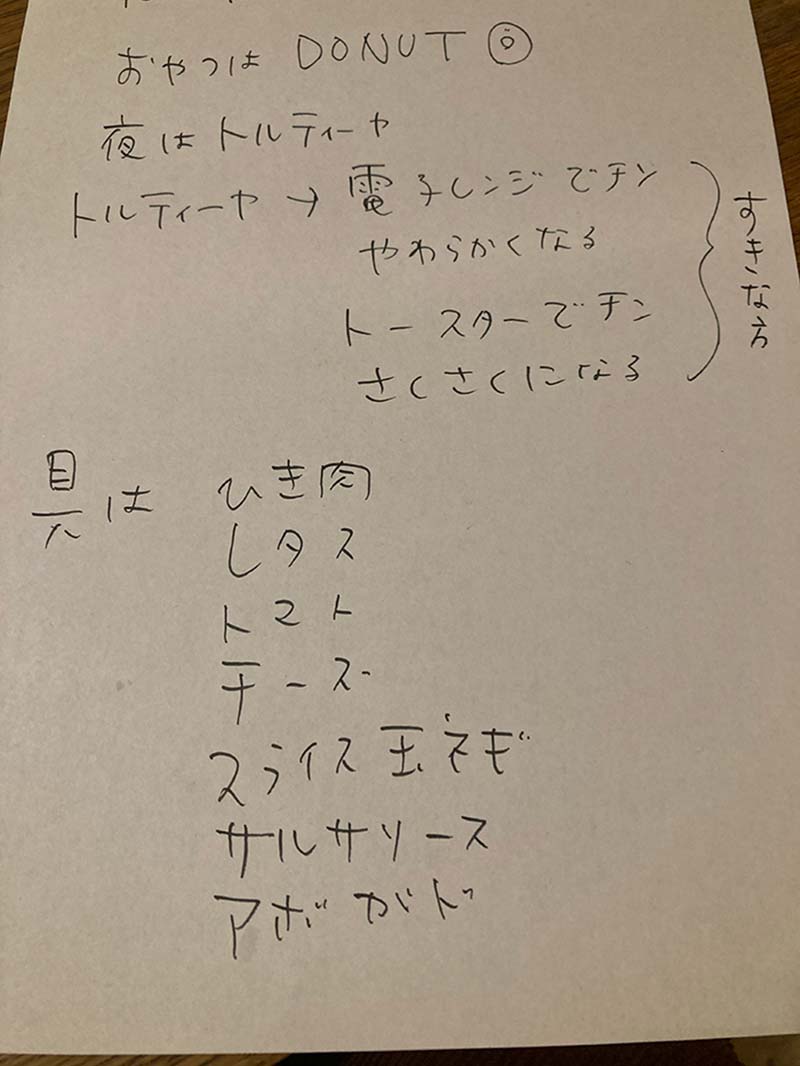 おやつは DONUT
夜はトルティーヤ
トルティーヤ → 電子レンジでチン
やわらかくなる
トースターでチン
さくさくになる
すきな方
具は ひき肉
レタス
トマト
チーズ
スライス玉ネギ
サルサソース
アボガド